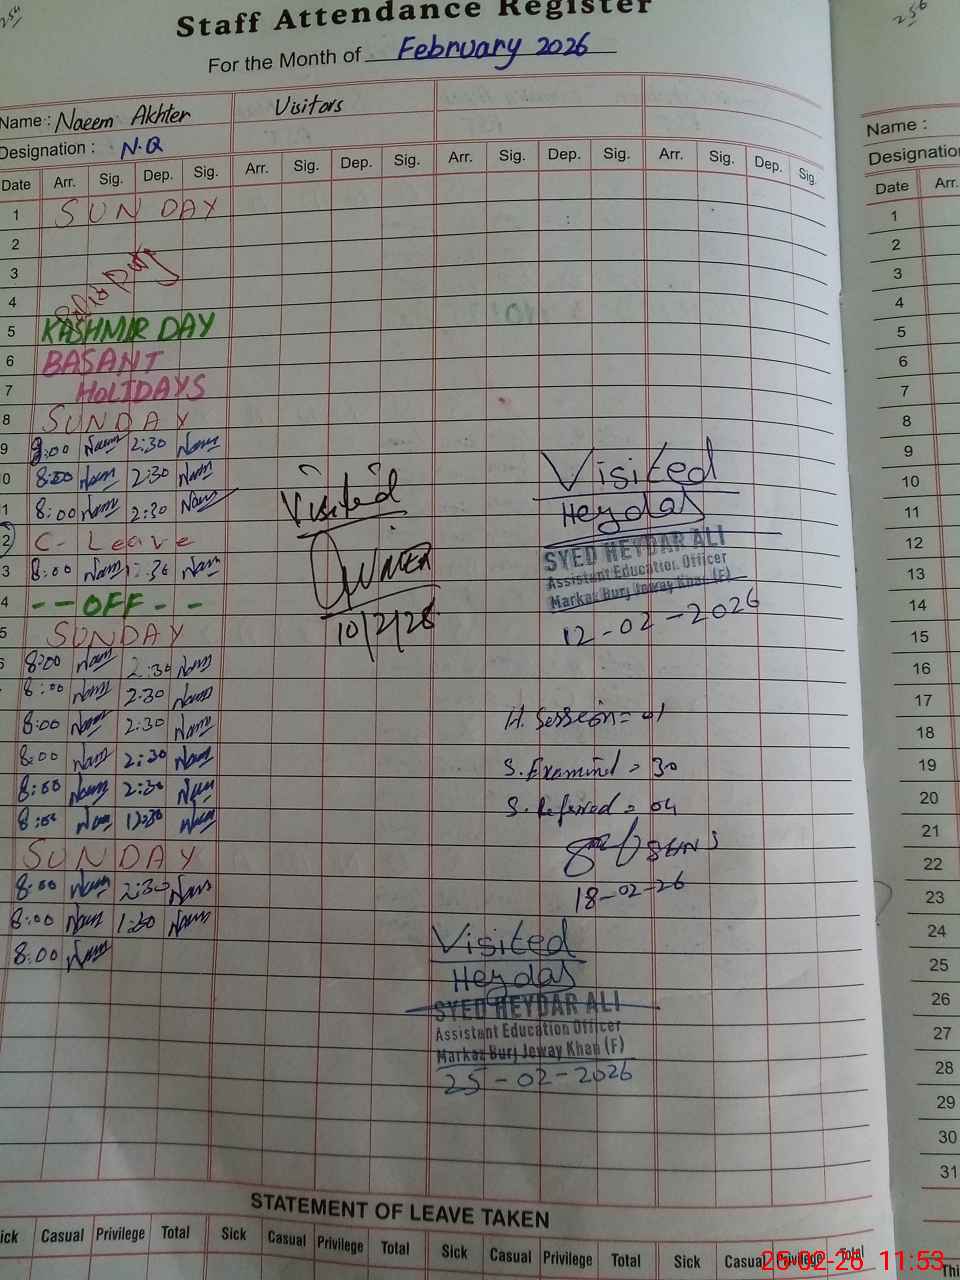 254
256
Staff Attendance Register
For the Month of February 2026
Name : Naeem Akhter Visitors
Designation : N.Q
Date Arr. Sig. Dep. Sig. Arr. Sig. Dep. Sig. Arr. Sig. Dep. Sig. Arr. Sig. Dep. Sig.
1 SUNDAY
2
3
4
5 KASHMIR DAY
6 BASANT
7 HOLIDAYS
8 SUNDAY
9 8:00 Naem 2:30 Naem
0 8:00 Naem 2:30 Naem
1 8:00 Naem 2:30 Naem
2 C- Leave
3 8:00 Naem 12:30 Naem
4 -- OFF --
5 SUNDAY
8:00 Naem 2:30 Naem
8:00 Naem 2:30 Naem
8:00 Naem 2:30 Naem
8:00 Naem 2:30 Naem
8:00 Naem 2:30 Naem
8:00 Naem 12:30 Naem
SUNDAY
8:00 Naem 2:30 Naem
8:00 Naem 1:30 Naem
8:00 Naem
Visited
10/2/26
Visited
Heydar
SYED HEYDAR ALI
Assistant Education Officer
Markaz Burj Jeway Khan (F)
12-02-2026
H. Session = 01
S. Examined = 30
S. Referred = 04
18-02-26
Visited
Heydar
SYED HEYDAR ALI
Assistant Education Officer
Markaz Burj Jeway Khan (F)
25-02-2026
STATEMENT OF LEAVE TAKEN
ick Casual Privilege Total Sick Casual Privilege Total Sick Casual Privilege Total Sick Casual Privilege Total
Name :
Designation
Date Arr.
1
2
3
4
5
6
7
8
9
10
11
12
13
14
15
16
17
18
19
20
21
22
23
24
25
26
27
28
29
30
31
Thi
25-02-26 11:53